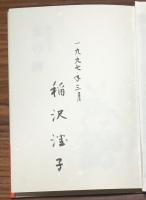 一九九七年三月
稲沢潤子